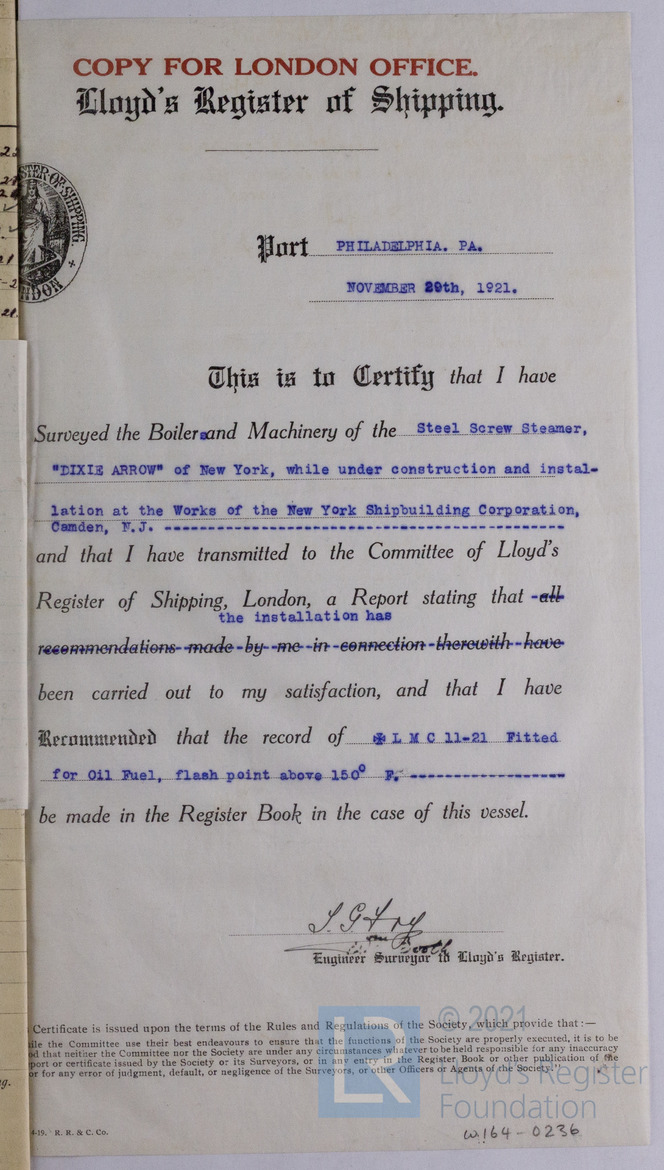 COPY FOR LONDON OFFICE.
Lloyd's Register of Shipping.
Port PHILADELPHIA. PA.
NOVEMBER 29th, 1921.
This is to Certify that I have
Surveyed the Boilers and Machinery of the Steel Screw Steamer,
"DIXIE ARROW" of New York, while under construction and instal-
lation at the Works of the New York Shipbuilding Corporation,
Camden, N.J. ---
and that I have transmitted to the Committee of Lloyd's
Register of Shipping, London, a Report stating that all
the installation has
recommendations made by me in connection therewith have
been carried out to my satisfaction, and that I have
Recommended that the record of ✠ L M C 11-21 Fitted
for Oil Fuel, flash point above 150° F. ---
be made in the Register Book in the case of this vessel.
Engineer Surveyor to Lloyd's Register.
Certificate is issued upon the terms of the Rules and Regulations of the Society, which provide that:—
ile the Committee use their best endeavours to ensure that the functions of the Society are properly executed, it is to be
od that neither the Committee nor the Society are under any circumstances whatever to be held responsible for any inaccuracy
port or certificate issued by the Society or its Surveyors, or in any entry in the Register Book or other publication of the
or for any error of judgment, default, or negligence of the Surveyors, or other Officers or Agents of the Society."
4-19. R. R. & C. Co.
LR
© 2021
Lloyd's Register
Foundation
W164-0236